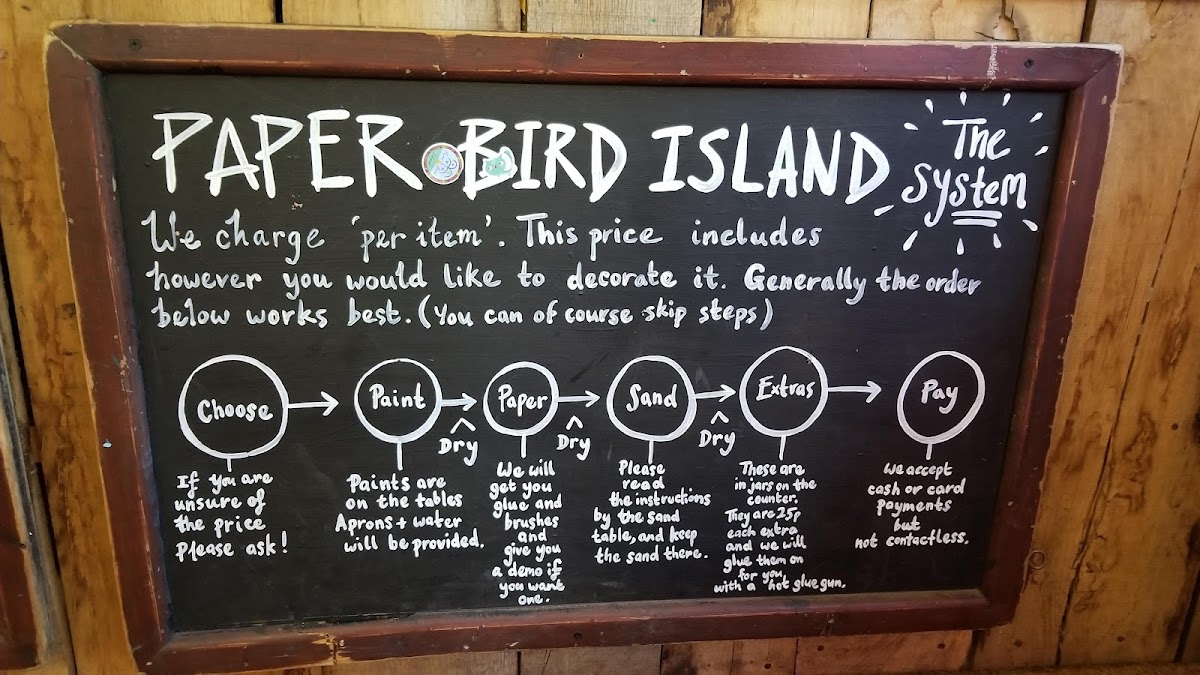 PAPER BIRD ISLAND
The
System
We charge 'per item'. This price includes
however you would like to decorate it. Generally the order
below works best. (You can of course skip steps)
Choose
Paint
Dry
Paper
Dry
Sand
Dry
Extras
Pay
If you are
unsure of
the price
Please ask!
Paints are
on the tables
Aprons + water
will be provided.
We will
get you
glue and
brushes
and
give you
a demo if
you want
one.
Please
read
the instructions
by the sand
table, and keep
the sand there.
These are
in jars on the
counter.
They are 25p
each extra
and we will
glue them on
for you
with a hot glue gun.
We accept
cash or card
payments
but
not contactless.